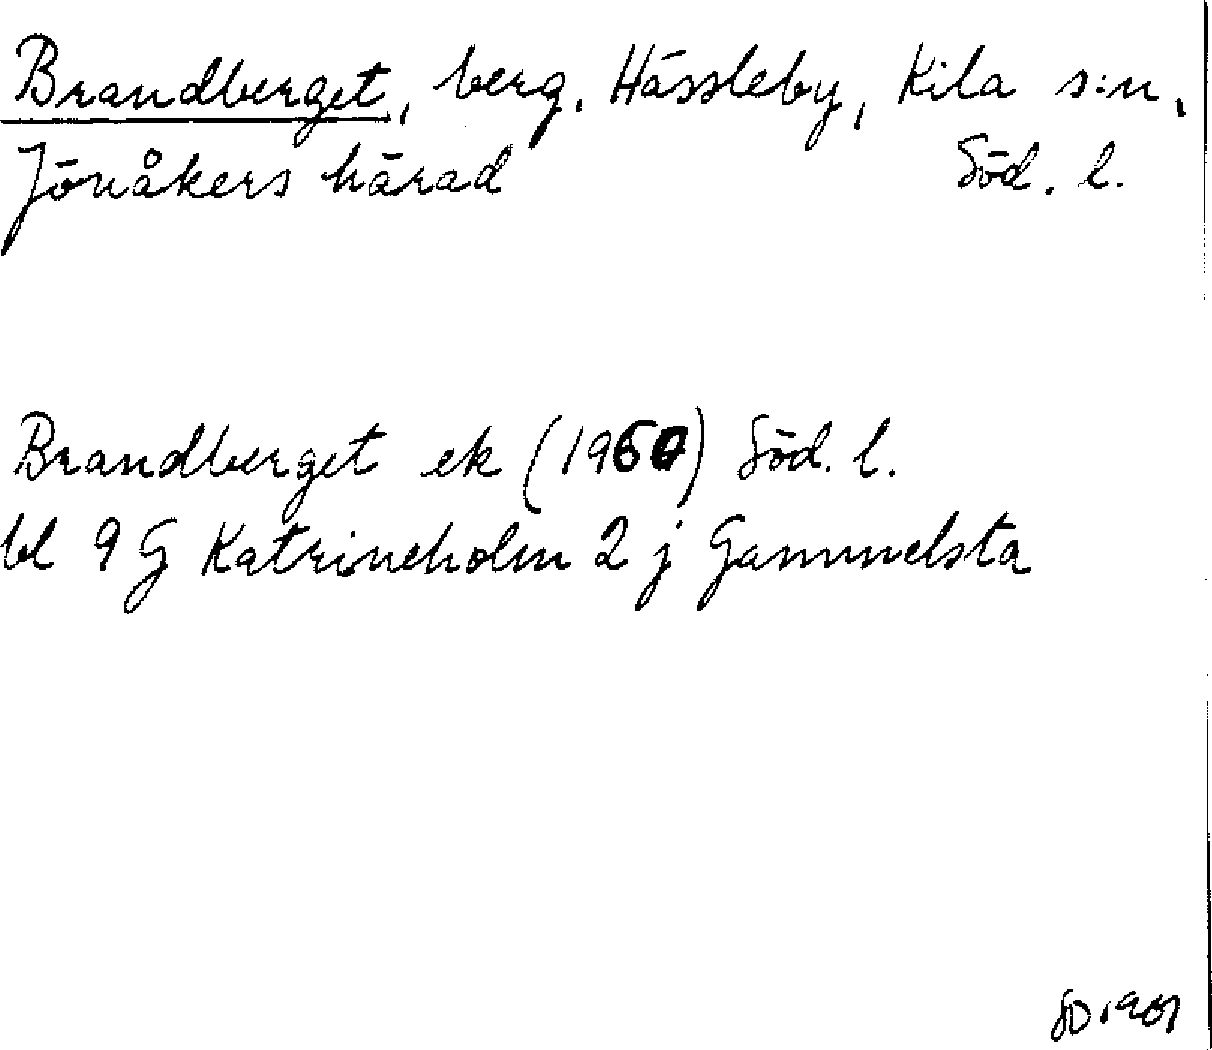 Brandberget, berg, Hässleby, Kila s:n,
Jönåkers härad Söd. l.
Brandberget ek (1960) Söd. l.
bl 9 G Katrineholm 2 j Gammelsta